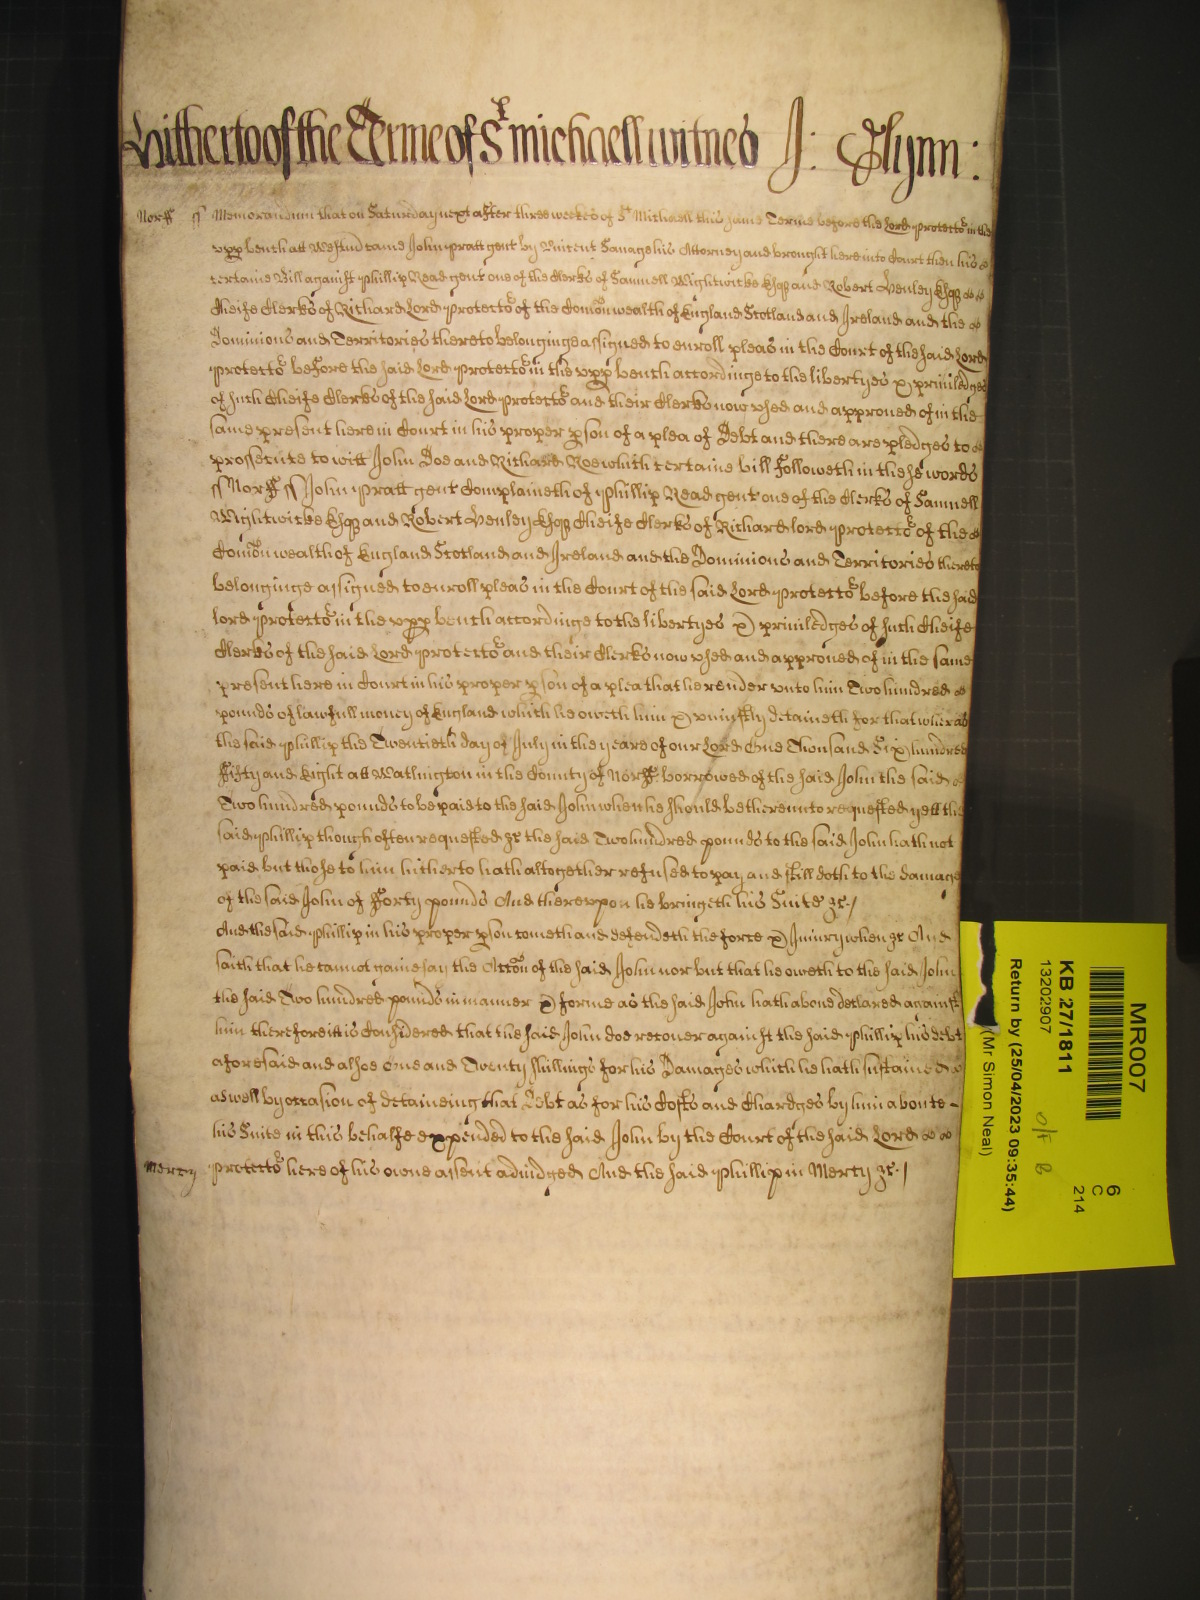 Hitherto of the Terme of St Michaell witnes J: Glynn:
Norff ss Memorandum that on Saturday next after three weekes of St Michaell this same Terme before the Lord Protector in the
vpp bench att Westm came John Pratt gent by Vincent Savage his Attorney and brought here into Court then his
certaine Bill against Phillip Read gent one of the Clerks of Samuell Wightwicke Esqr and Robert Henley Esqr
Cheife Clerks of Richard Lord Protector of the Comonwealth of England Scotland and Ireland and the
Dominions and Territories thereto belonginge assigned to enroll pleas in the Court of the said Lord
Protector before the said Lord Protector in the vpp bench accordinge to the libertyes & priviledges
of such Cheife Clerks of the said Lord Protector and their Clerks now vsed and approved of in the
same present here in Court in his proper pson of a plea of Debt and there are pledges to
prossecute to witt John Doe and Richard Roe which certaine bill followeth in these words
ss Norff ss John Pratt gent Complaineth of Phillip Read gent one of the Clerks of Samuell
Wightwicke Esqr and Robert Henley Esqr Cheife Clerks of Richard lord Protector of the
Comonwealth of England Scotland and Ireland and the Dominions and Territories thereto
belonginge assigned to enroll pleas in the Court of the said Lord Protector before the said
lord Protector in the vpp bench accordinge to the libertyes & priviledges of such Cheife
Clerks of the said Lord Protector and their Clerks now vsed and approved of in the same
present here in Court in his proper pson of a plea that he render vnto him Two hundred
pounds of lawfull money of England which he oweth him & vniustly detaineth for that wheras
the said Phillip the Twentieth day of July in the yeare of our Lord One Thousand Six hundred
Fifty and Eight att Watlington in the County of Norff borrowed of the said John the said
Two hundred pounds to be paid to the said John when he should be therevnto requested yett the
said Phillip though often requested &c the said Two hundred pounds to the said John hath not
paid but those to him hitherto hath altogether refused to pay and still doth to the damage
of the said John of Forty pounds And therevpon he bringeth his Suite &c./
And the said Phillip in his proper pson cometh and defendeth the force & Iniury when &c And
saith that he cannot gainesay the Accon of the said John nor but that he oweth to the said John
the said Two hundred pounds in manner & forme as the said John hath above declared against
him therefore itt is Considered that the said John doe recover against the said Phillip his debt
aforesaid and alsoe One and Twenty shillings for his Damages which he hath sustained
aswell by occasion of detaineing that Debt as for his Costs and Chardges by him aboute -
his Suite in this behalfe expended to the said John by the Court of the said Lord
Mercy Protector here of his owne assent adiudged And the said Phillip in Mercy &c./
MR007
KB 27/1811
13202907
Return by (25/04/2023 09:35:44)
(Mr Simon Neal)
6
C
214